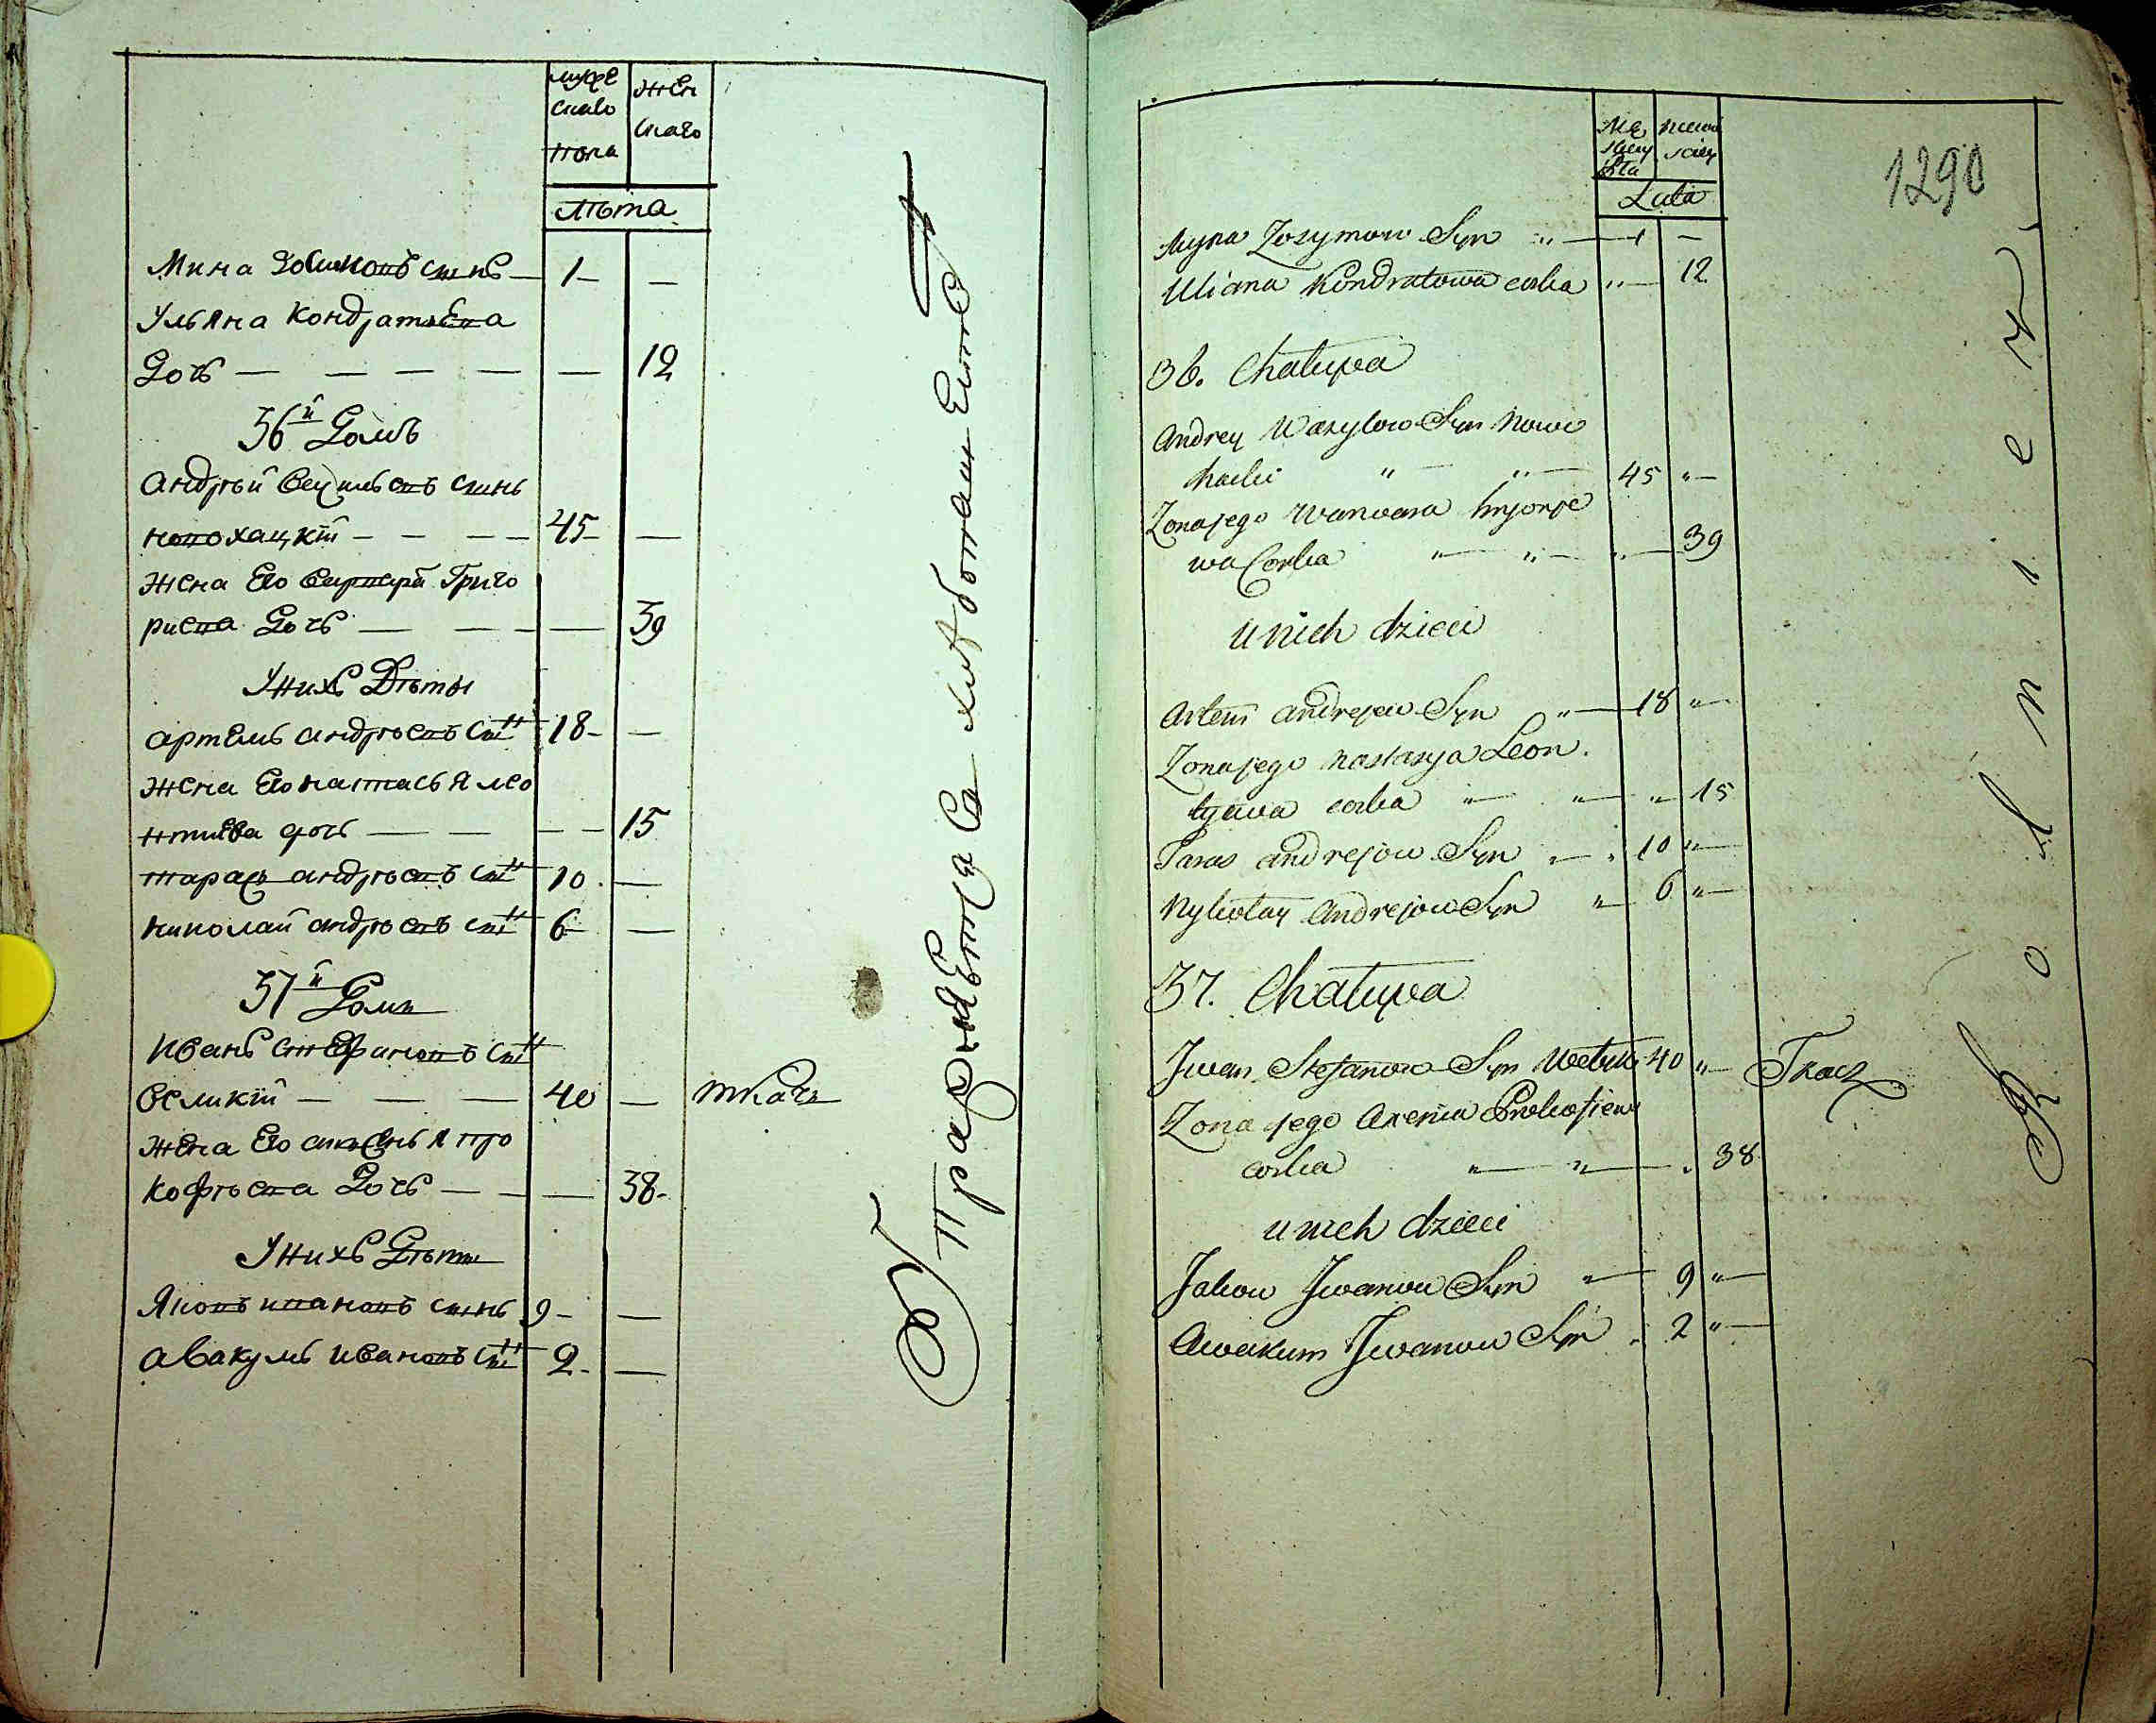 мужескаго пола
женскаго
лѣта
Мина Зосимовъ сынъ — 1 — —
Ульяна Кондратьева
дочь — — — — — 12
36й домъ
Андрѣй Васильевъ сынъ
Новохацкiй — — — — 45 — —
жена Его Варвара Григо
риева дочь — — — — 39
У нихъ Дѣты
Артемъ Андрѣевъ сынъ 18 — —
жена Его Настасья Лео
нтиева дочь — — — — 15
Тарасъ Андрѣевъ сынъ 10 —
Николай Андрѣевъ сынъ 6 —
37й домъ
Иванъ Стефановъ сынъ
Великiй — — — 40 — ткачь
жена Его Аксенья Про
кофѣева дочь — — — 38 —
У нихъ Дѣты
Яковъ Ивановъ сынъ 9 — —
Авакумъ Ивановъ сынъ 2 — —
Упражняется Хлебопашеством
1290
Męskiey Płci
niewieściey
Lata
Myna Zosymow Syn „ — 1 —
Uliana Kondratowa corka „ — 12
36. Chałupa
Andrey Wasylow Syn Nowo
hacki „ — „ — 45 „ —
Zona jego Warwara Hryorje
wa Corka „ — „ — „ — 39
u nich dzieci
Artem Andrejew Syn „ — 18 „ —
Zona jego Nastasya Leon
tyewa corka „ — „ — „ — 15
Taras Andrejow Syn „ — „ 10 „ —
Nykołay Andrejow Syn „ — 6 „ —
37. Chałupa
Jwan Stefanow Syn Wełyki 40 „ — Tkacz
Zona jego Axenia Prokofiewa
corka „ — „ — „ 38
u nich dzieci
Jakow Jwanow Syn „ — 9 „ —
Awakum Jwanow Syn „ 2 „ —
Rolnicy